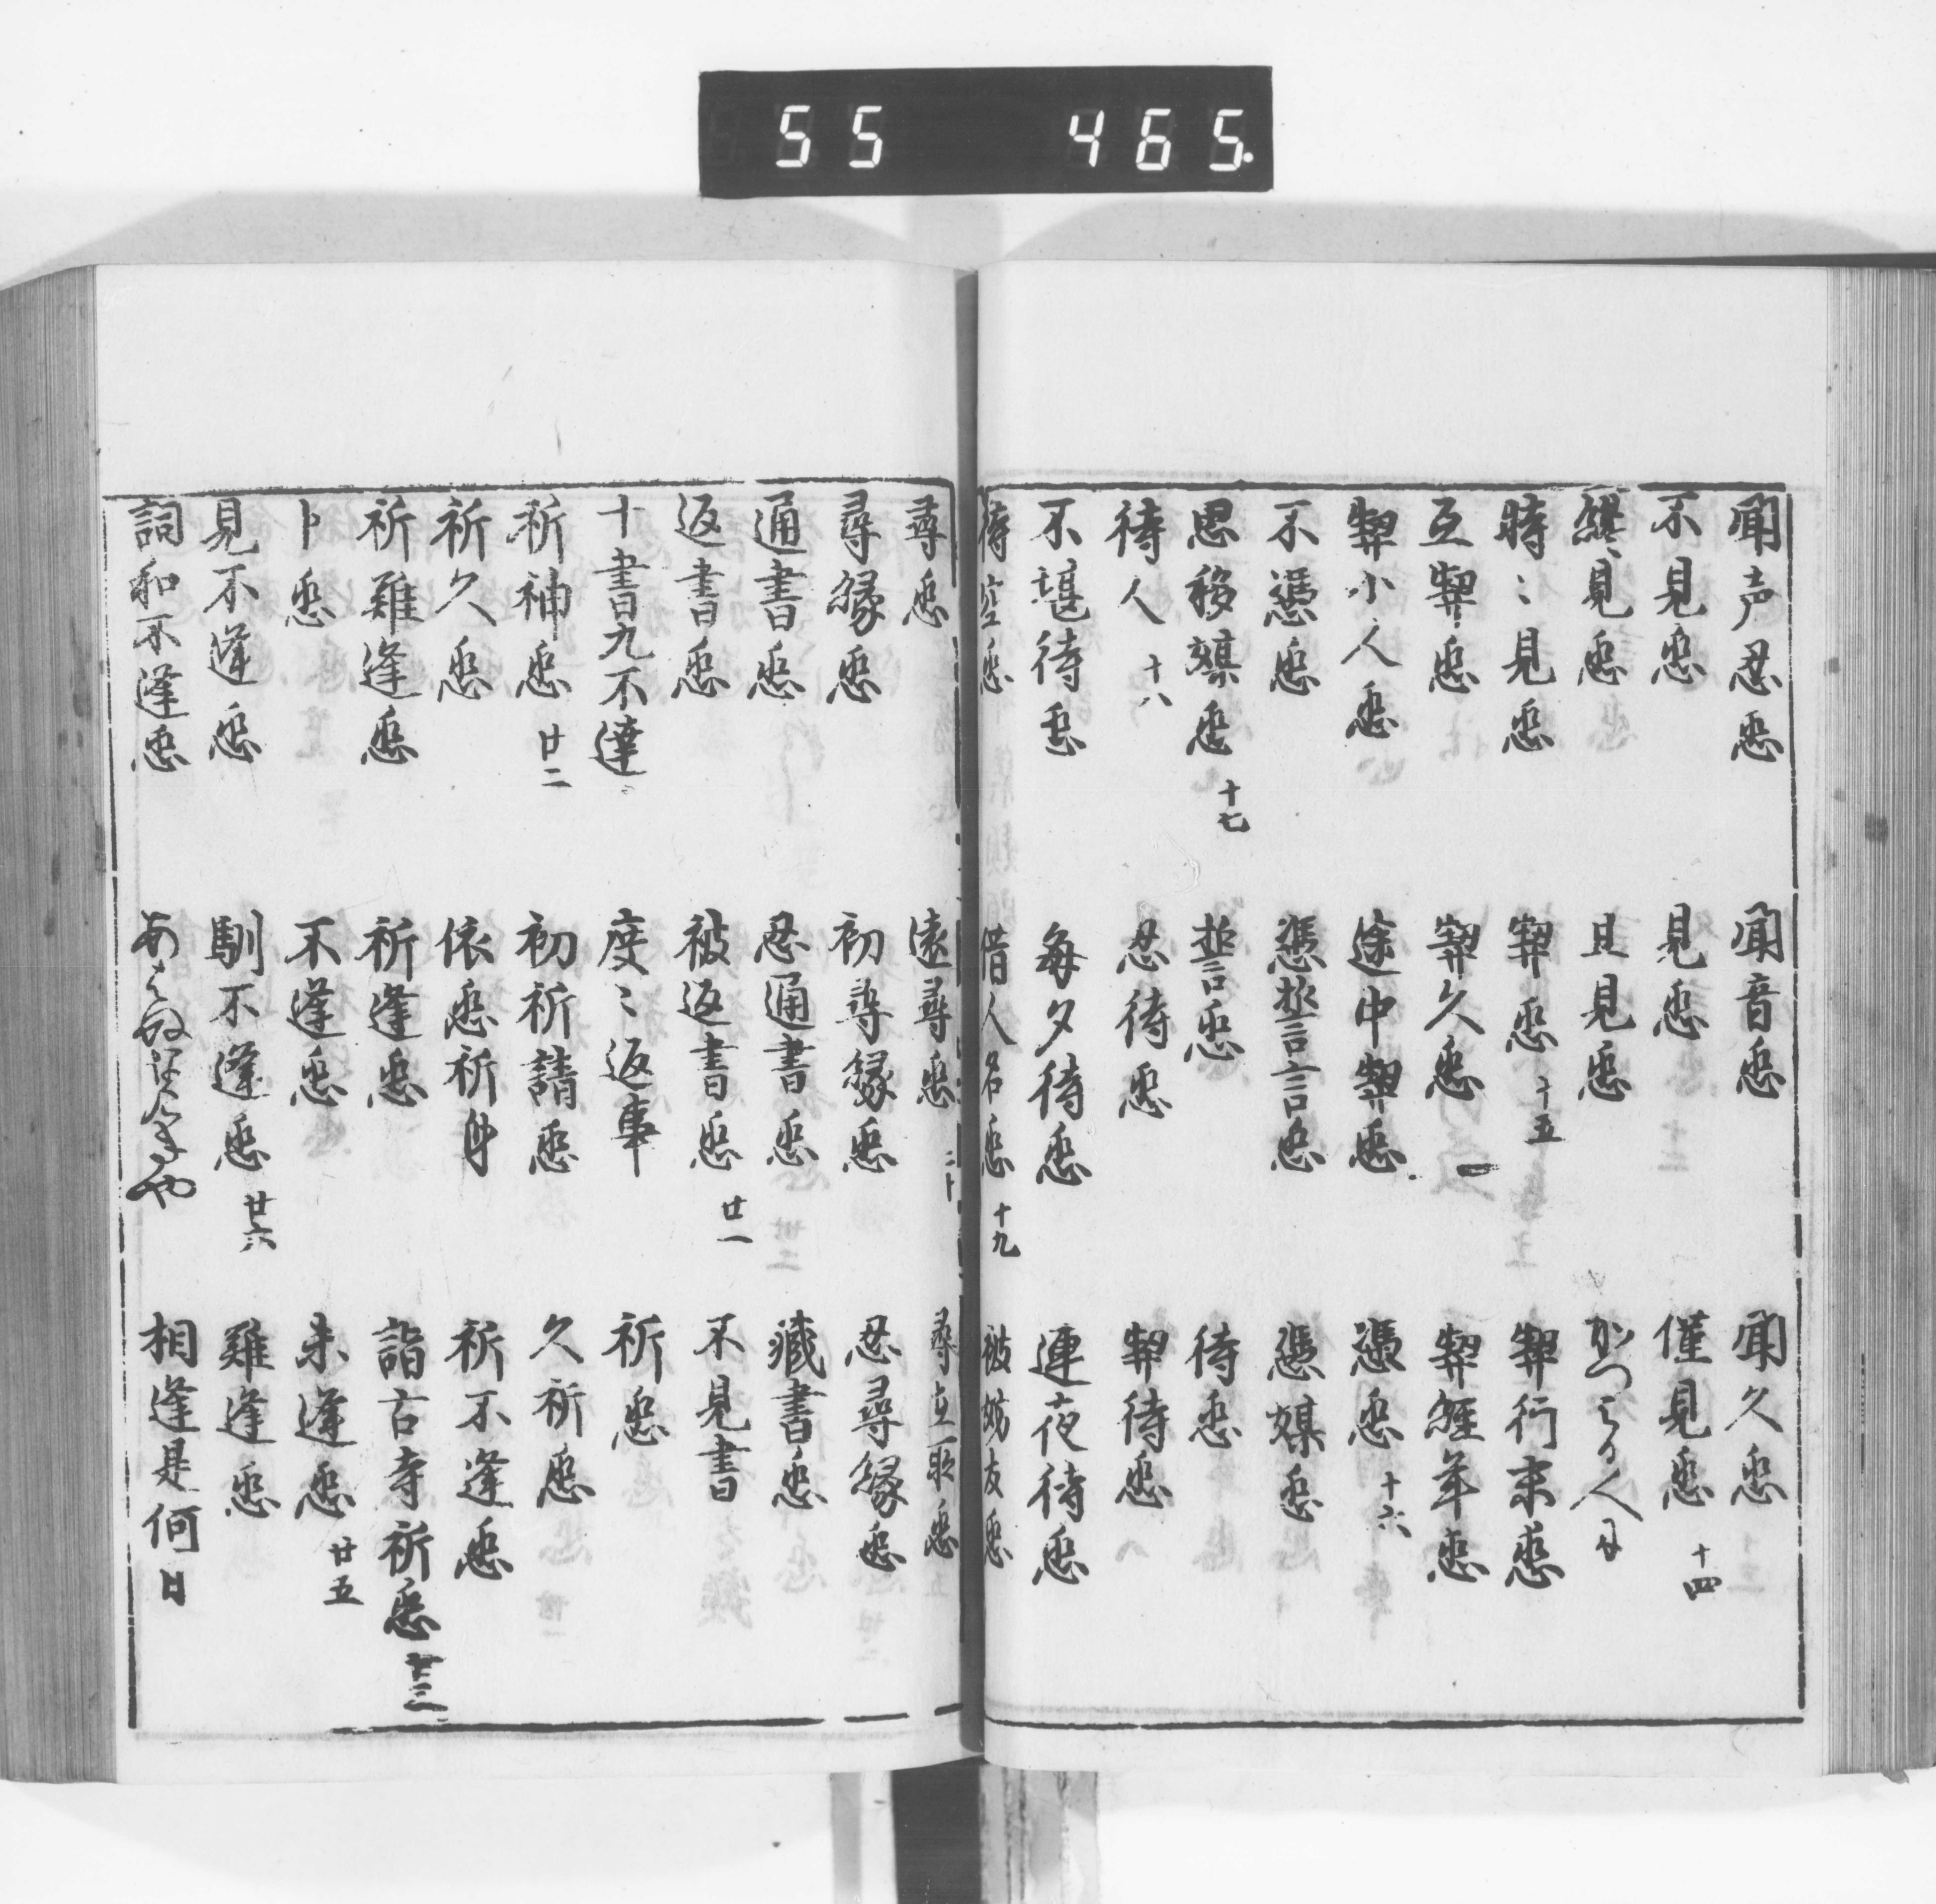 55 465.
聞声忍恋 聞音恋 聞久恋
不見恋 見恋 僅見恋 十四
纔見恋 且見恋
時〻見恋 契恋 十五 契行末恋
互契恋 契久恋 契経年恋
契小人恋 途中契恋 憑恋 十六
不憑恋 憑誓言恋 憑媒恋
思移媒恋 十七 誓恋 待恋
待人 十八 忍待恋 契待恋
不堪待恋 毎夕待恋 連夜待恋
待空恋 借人名恋 十九 被妨友恋
尋恋 遠尋恋 二十 恋
尋縁恋 初尋縁恋 忍尋縁恋
通書恋 忍通書恋 蔵書恋
返書恋 被返書恋 廿一 不見書
十書九不達 度〻返事 祈恋
祈神恋 廿二 初祈請恋 久祈恋
祈久恋 依恋祈身 祈不逢恋
祈難逢恋 祈逢恋 詣古寺祈恋
卜恋 不逢恋 未逢恋 廿五
見不逢恋 馴不逢恋 廿六 難逢恋
詞和不逢恋 相逢是何日